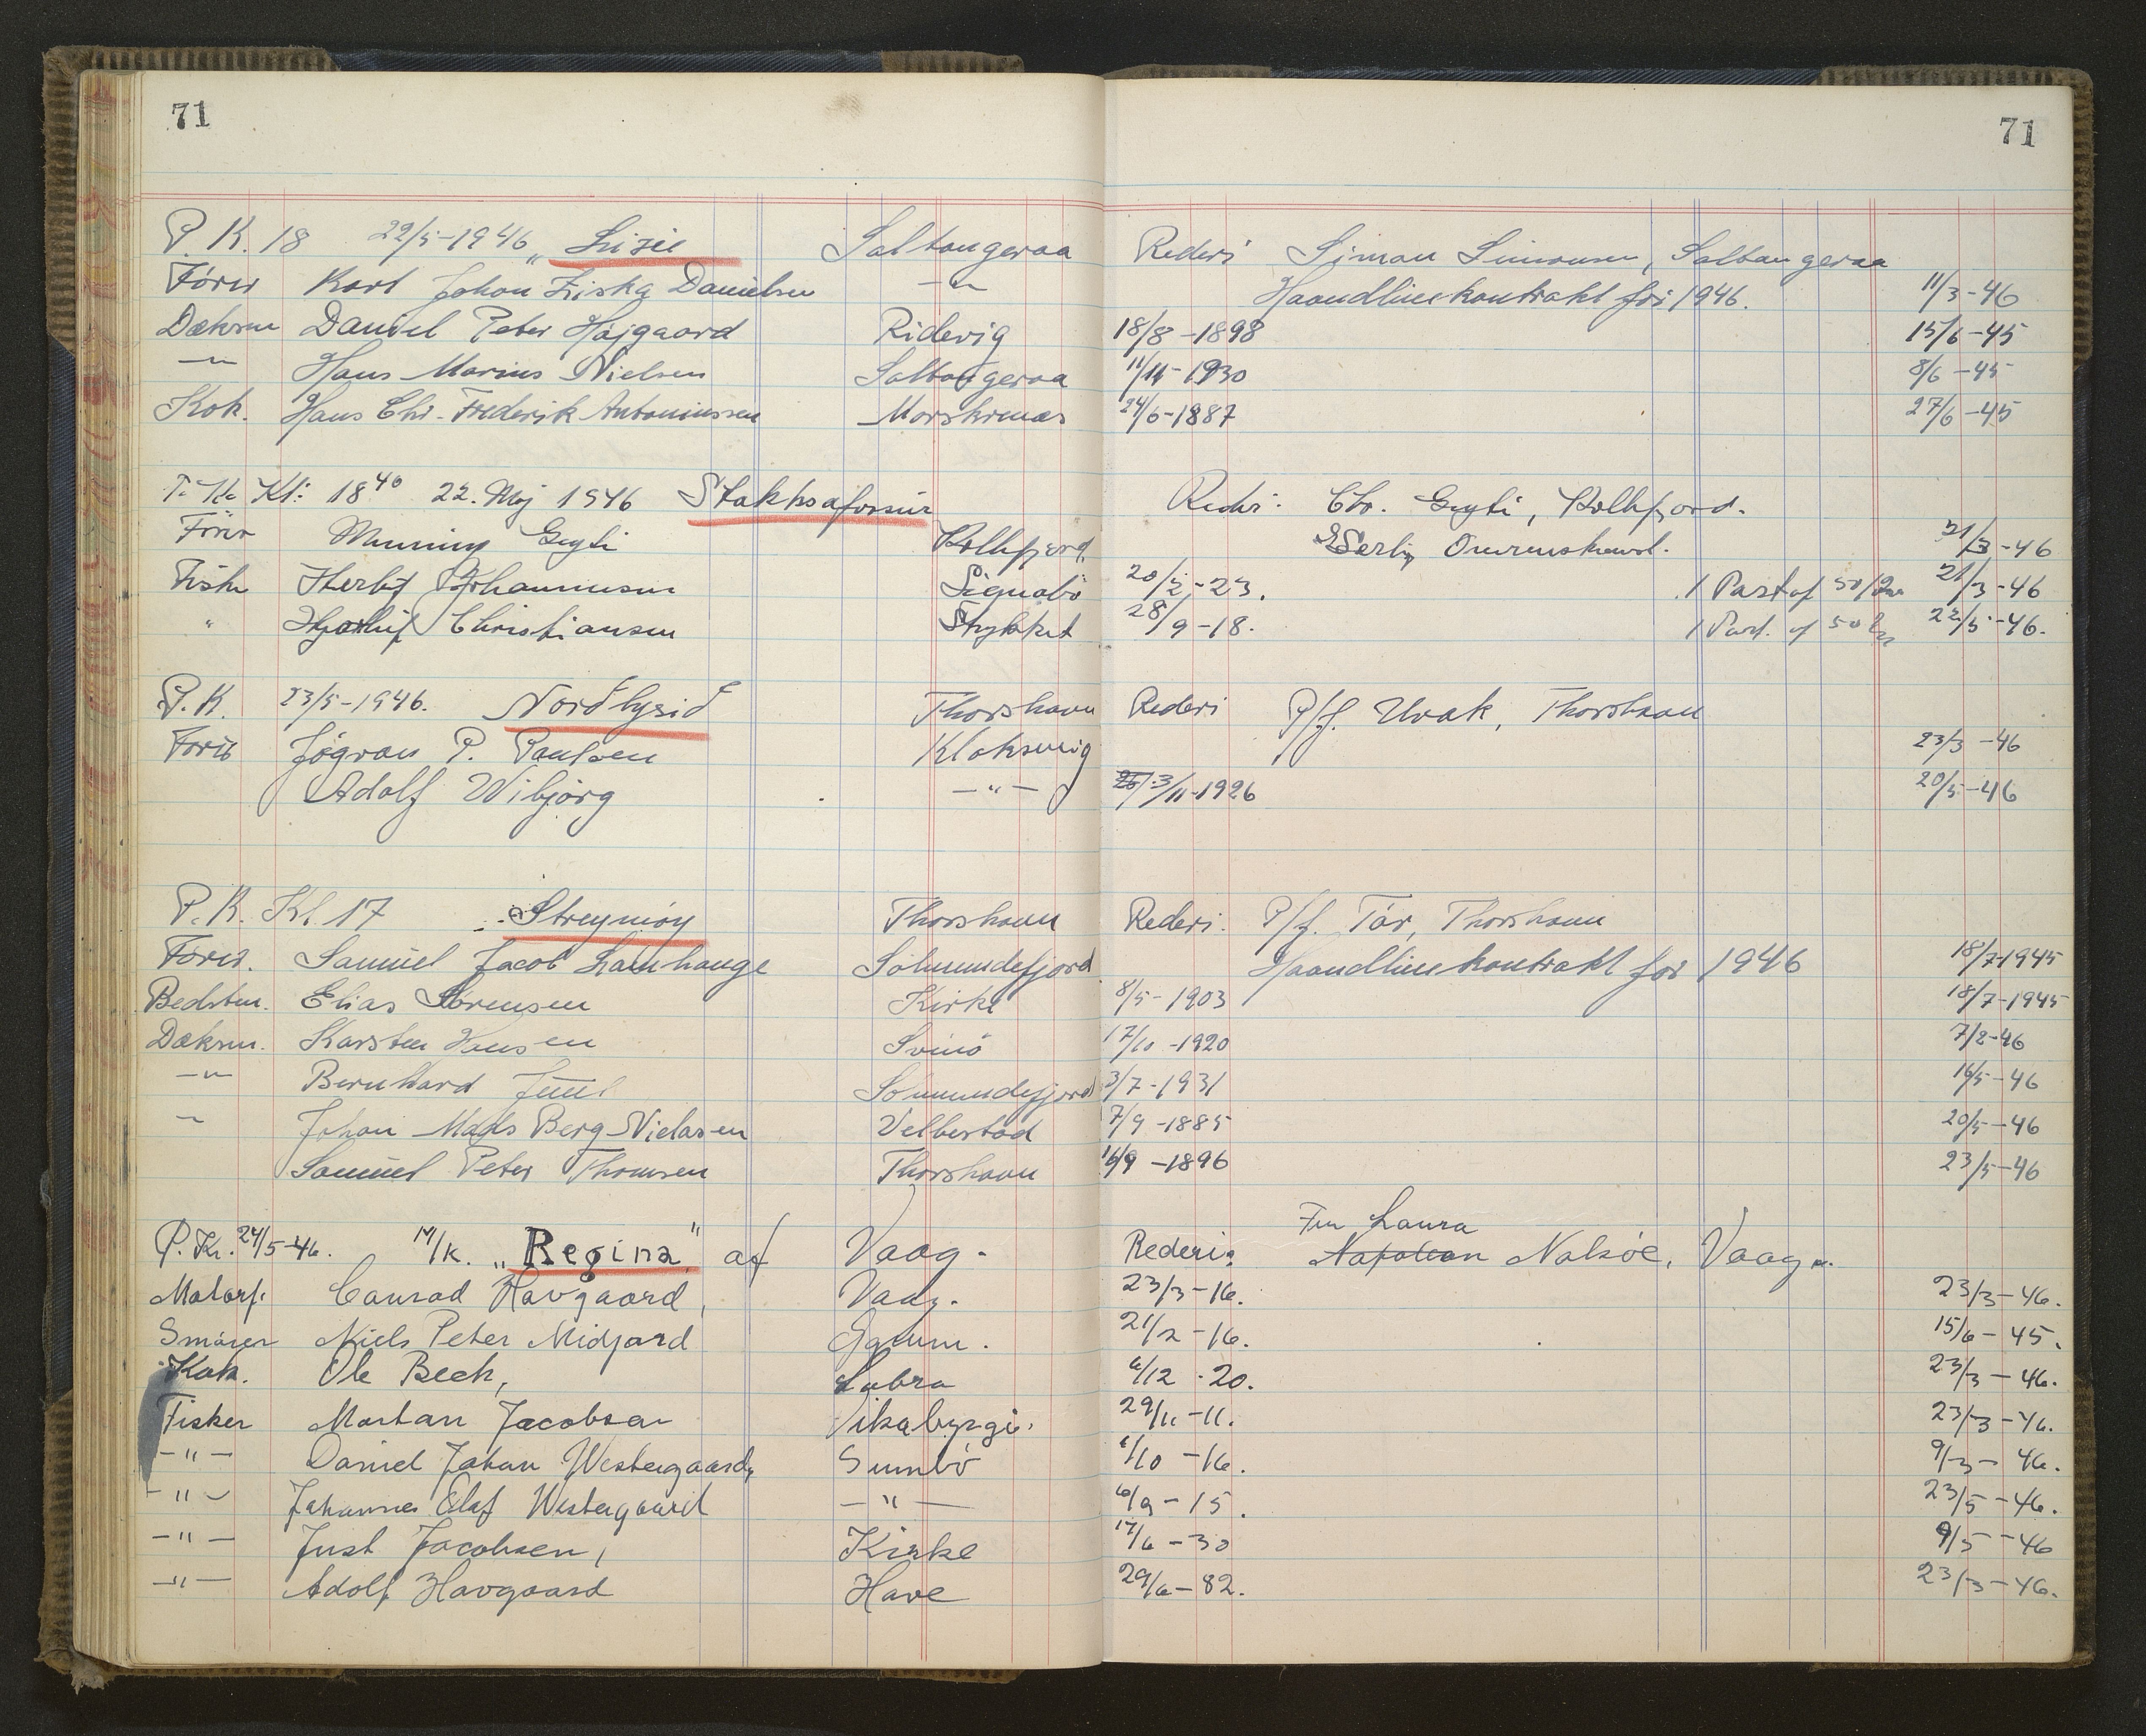 71
71
P. K. 18 22/5-1946 „Lizie Saltangeraa Rederi Simon Simonsen, Saltangeraa
Förer Karl Johan Ziska Danielsen —"— Haandlinekontrakt for 1946. 11/3-46
Dæksm Daniel Peter Højgaard Ridevig 18/8-1898 15/6-45
—"— Hans Marius Nielsen Saltangeraa 11/11-1930 8/6-45
Kok. Hans Chr. Frederik Antoniussen Morskrnæs 24/6-1887 27/6-45
P. K. Kl: 18⁴⁰ 22. Maj 1946 Stakksafossur Rederi: Chr. Gugti, Kollefjord.
Förer Kollefjord 21/3-46
Fisker Herluf Johannesen Signabö 20/2-23. 1 Part af 50/2 21/3-46
" Hjarlúf Christiansen Stykket 28/9-18. 1 Part. af 50 22/5-46.
P. K. 23/5-1946. Nordlysid Thorshavn Rederi P/f. Uvak, Thorshavn
Förer Jógvan P. Paulsen Klaksvig 23/3-46
Adolf Wibjörg —"— 3/11-1926 20/5-46
P. K. Kl. 17 Streymoy Thorshavn Rederi. P/f. Tór, Thorshavn
Förer. Samuel Jacob Lamhauge Solmundefjord Haandlinekontrakt for 1946 18/7-1945
Bedstm. Elias Sörensen Kirke 8/5-1903 18/7-1945
Dæksm. Karsten Hansen Svinö 17/10-1920 7/2-46
—"— Bernhard Juul Solmundefjord 3/7-1931 16/5-46
—"— Johan Mads Berg Nielasen Velbestad 7/9-1885 20/5-46
Samuel Peter Thomsen Thorshavn 16/9-1896 23/5-46
Fru Laura
P. K. 24/5-46. M/k. „Regina" af Vaag. Rederi: Napoleon Nolsöe, Vaag.
Motorf. Conrad Havgaard, Vaag. 23/3-16. 23/3-46.
Smörer Niels Peter Midjord Famm. 21/2-16. 15/6-45.
Kok. Ole Bech, Lobra 6/12-20. 23/3-46.
Fisker Mortan Jacobsen Vikabyrgi. 29/11-11. 23/3-46.
—"— Daniel Johan Westergaard, Sumbö 6/10-16. 9/3-46.
—"— Johannes Olaf Westergaard —"— 6/9-15. 23/5-46.
—"— Just Jacobsen, Kirke 17/6-30 9/5-46
—"— Adolf Havgaard Hove 29/6-82. 23/3-46.